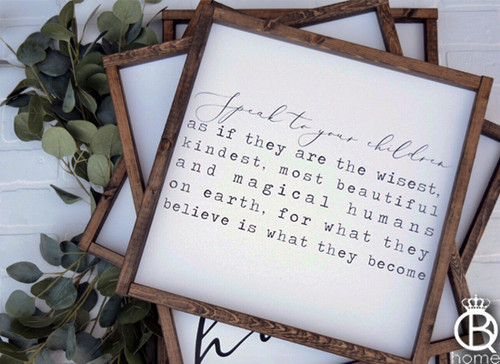 Speak to your children
as if they are the wisest,
kindest, most beautiful
and magical humans
on earth, for what they
believe is what they become
CB
home